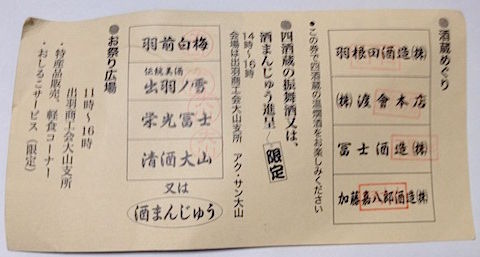 ●酒蔵めぐり
羽根田酒造㈱
㈱渡會本店
冨士酒造㈱
加藤嘉八郎酒造㈱
●この券で四酒蔵の温燗酒をお楽しみください
●四酒蔵の振舞酒又は、
酒まんじゅう進呈/限定
14時〜16時
会場は出羽商工会大山支所 アク・サン大山
羽前白梅
伝統美酒
出羽ノ雪
栄光冨士
清酒大山
又は
酒まんじゅう
●お祭り広場
11時〜16時
出羽商工会大山支所
・特産品販売、軽食コーナー
・おしるこサービス(限定)